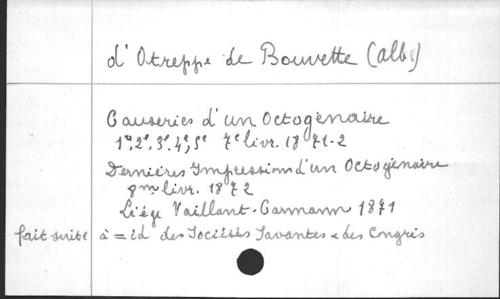 d'Otreppe de Bouvette (alb.)
Causeries d'un Octogénaire
1re, 2e, 3e, 4e, 5e 7e livr. 1871-2
Dernières Impressions d'un Octogénaire
8me livr. 1872
Liége Vaillant-Carmann 1871
fait suite à = id des Sociétés Savantes & des Congrès